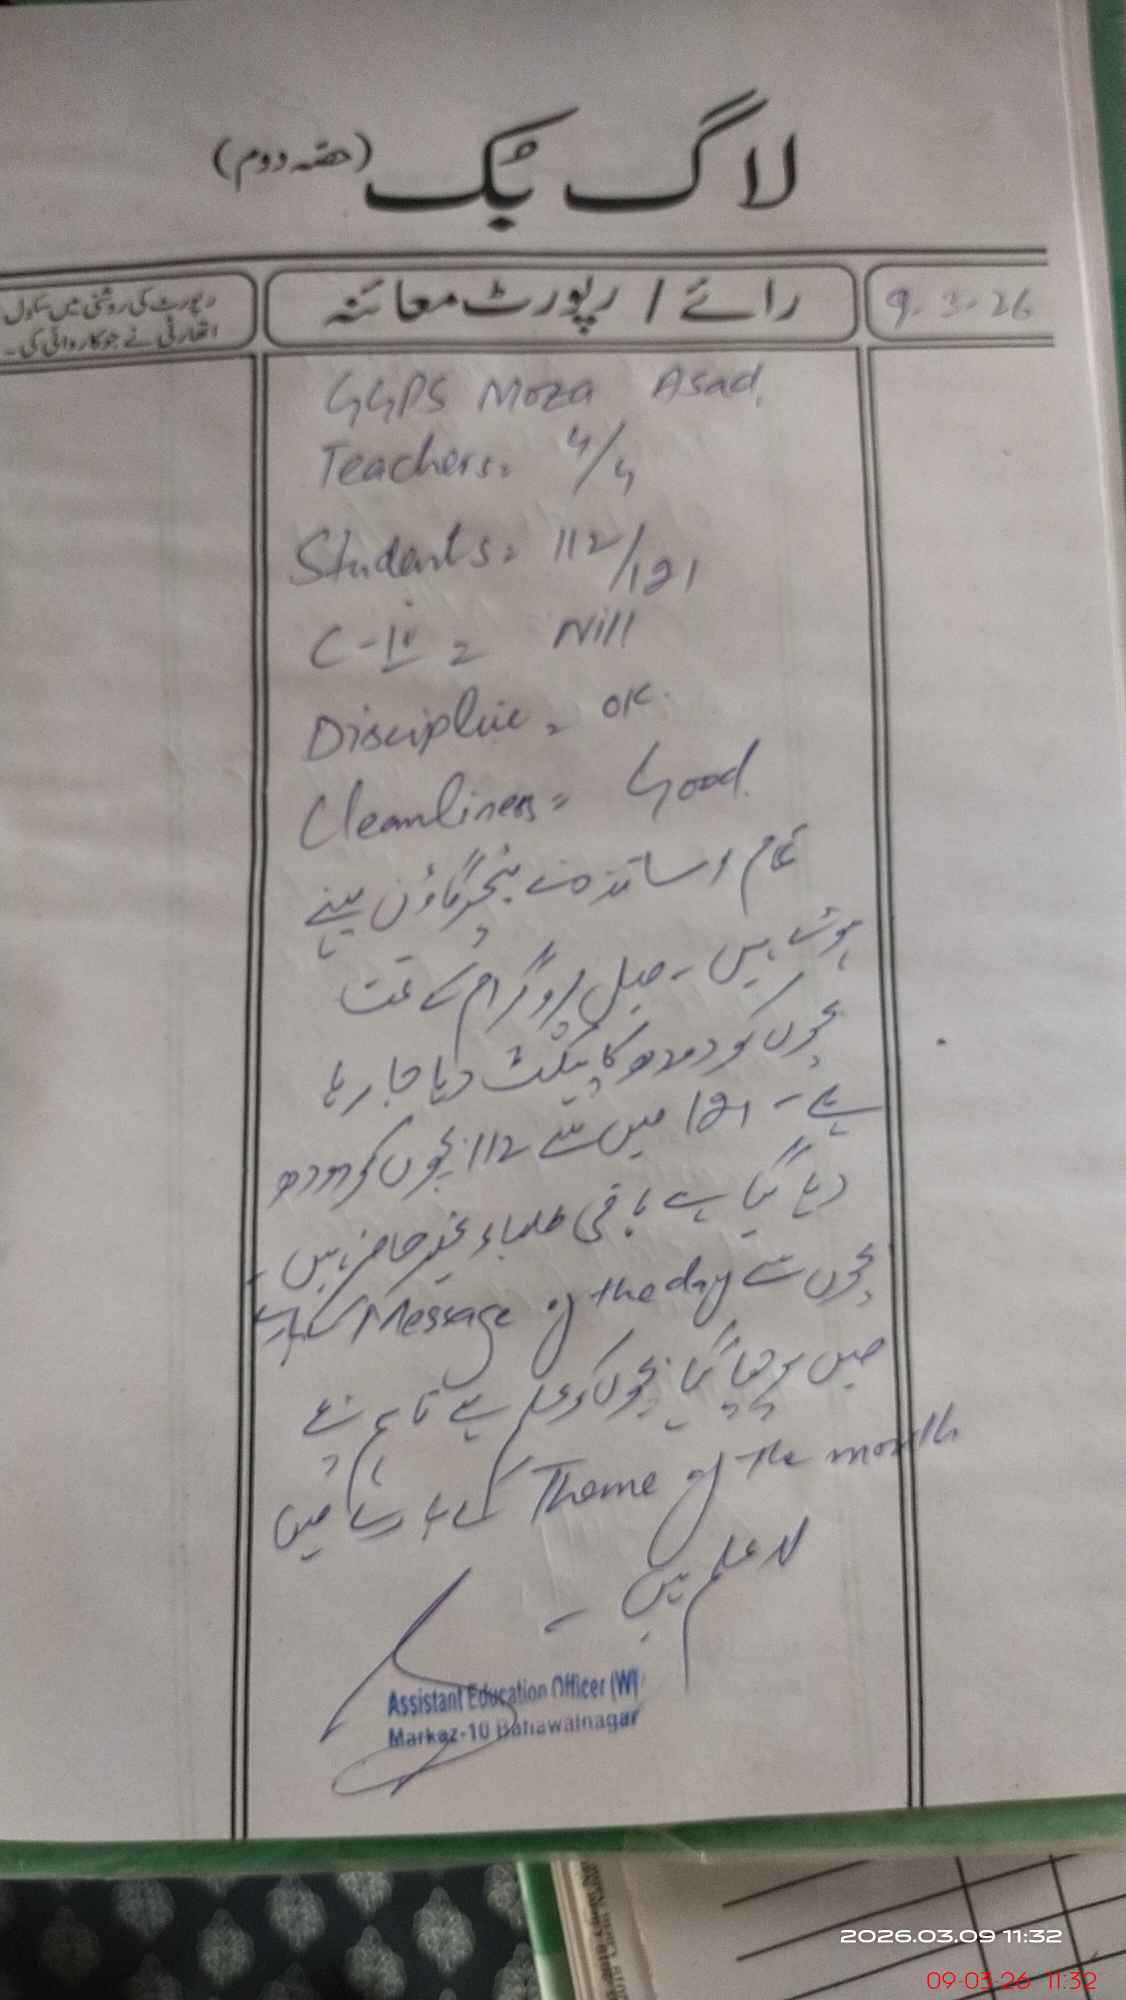 لاگ بُک (حصّہ دوم)
9.3.26
رائے / رپورٹ معائنہ
رپورٹ کی روشنی میں سکول
اتھارٹی نے جو کاروائی کی۔
GGPS Moza Asad.
Teachers = 4/4
Students = 112/121
C-IV = Nill
Discipline = OK.
Cleanliness = Good.
تمام اساتذہ نے ٹیچر گاؤن پہنے
ہوئے ہیں۔ میل پروگرام کے تحت
بچوں کو دودھ کا پیکٹ دیا جا رہا
ہے۔ 121 میں سے 112 بچوں کو دودھ
دیا گیا ہے باقی طلباء غیر حاضر ہیں۔
بچوں سے Message of the day کے بارے
میں پوچھا گیا بچوں کو علم ہے تاہم بچے
Theme of the month کے بارے میں
لاعلم ہیں۔
Assistant Education Officer (W)
Markaz-10 Bahawalnagar
2026.03.09 11:32
09-03-26 11:32